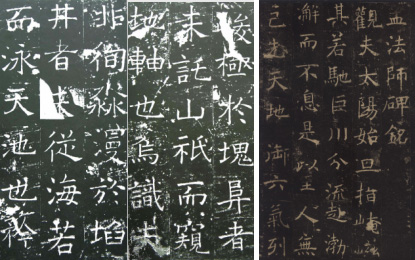 峻極於塊阜者
未託山祇而窺
地軸也烏識夫
徇淼漫於埳
井者未從海若
而泳天池也矜
孟法師碑銘
觀夫太陽始旦指崦嵫
其若馳巨川分流赴渤
澥而不息是以至人無
己天地御六氣列